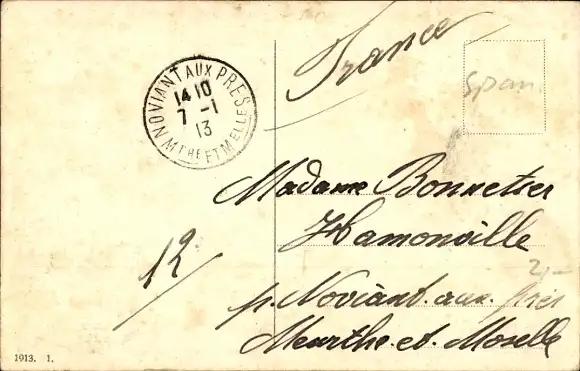 France
NOVIANT AUX PRES
14 10
7 - 1
13
MTHE ET MELLE
Span.
Madame Bonnetier
Hamonville
2,-
p. Noviant. aux. prés
Meurthe. et. Moselle
12
1913. 1.